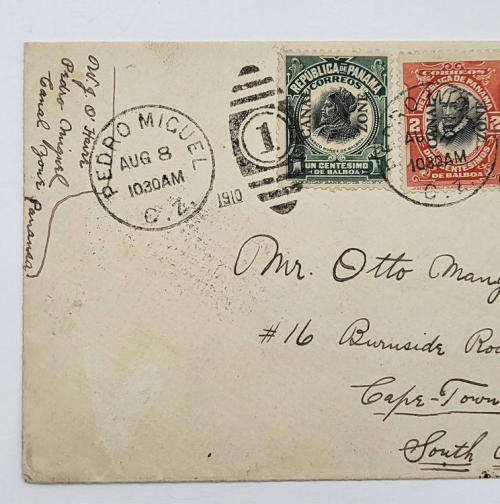 Pedro Miguel
Canal Zone Panama
PEDRO MIGUEL
AUG 8
1030AM
C.Z.
1910
1
REPUBLICA DE PANAMA
CORREOS
CANAL
ZONE
1 UN CENTESIMO 1
DE BALBOA
CORREOS
REPUBLICA DE PANAMA
2
CENTESIMOS
DE BALBOA
PEDRO
AUG 8
1030AM
C.Z.
Mr. Otto Mang
#16 Burnside Roa
Cape-Town
South